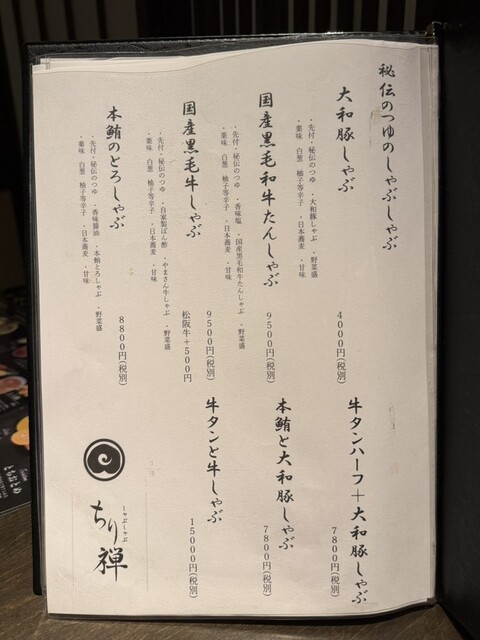 秘伝のつゆのしゃぶしゃぶ
大和豚しゃぶ
・先付・秘伝のつゆ ・大和豚しゃぶ ・野菜盛
・薬味 白葱 柚子等辛子 ・日本蕎麦 ・甘味
4000円(税別)
国産黒毛和牛たんしゃぶ
・先付・秘伝のつゆ ・香味塩 ・国産黒毛和牛たんしゃぶ ・野菜盛
・薬味 白葱 柚子等辛子 ・日本蕎麦 ・甘味
9500円(税別)
国産黒毛牛しゃぶ
・先付・秘伝のつゆ ・自家製ぽん酢 ・やまさん牛しゃぶ ・野菜盛
・薬味 白葱 柚子等辛子 ・日本蕎麦 ・甘味
9500円(税別)
松阪牛+500円
本鮪のとろしゃぶ
・先付・秘伝のつゆ ・香味醤油 ・本鮪とろしゃぶ ・野菜盛
・薬味 白葱 柚子等辛子 ・日本蕎麦 ・甘味
8800円(税別)
牛タンハーフ+大和豚しゃぶ
7800円(税別)
本鮪と大和豚しゃぶ
7800円(税別)
牛タンと牛しゃぶ
15000円(税別)
しゃぶしゃぶ
ちり禅